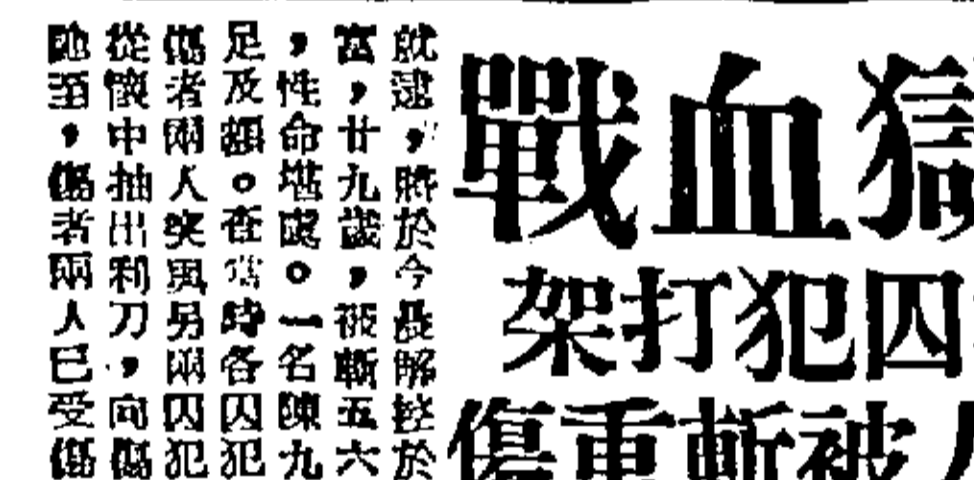 獄血戰
囚犯打架
人被斬重傷
就逮，將於今晨解控於
富，廿九歲，被斬五六
，性命堪虞。一名陳九
足及。在當時各囚犯
傷者兩人突與另兩囚犯
從懷中抽出利刀，向傷
馳至，傷者兩人已受傷